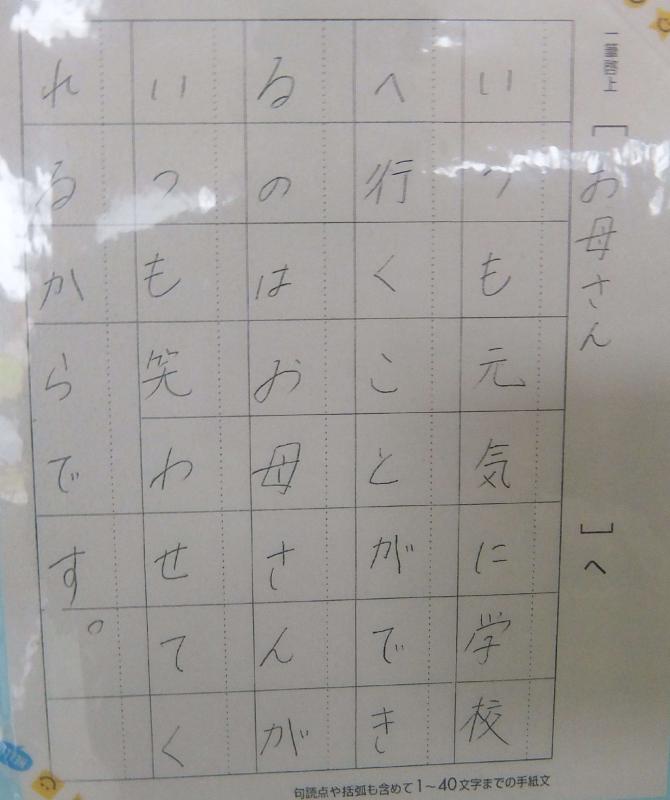 一筆啓上
[お母さん]へ
いつも元気に学校
へ行くことができ
るのはお母さんが
いつも笑わせてく
れるからです。
句読点や括弧も含めて1～40文字までの手紙文